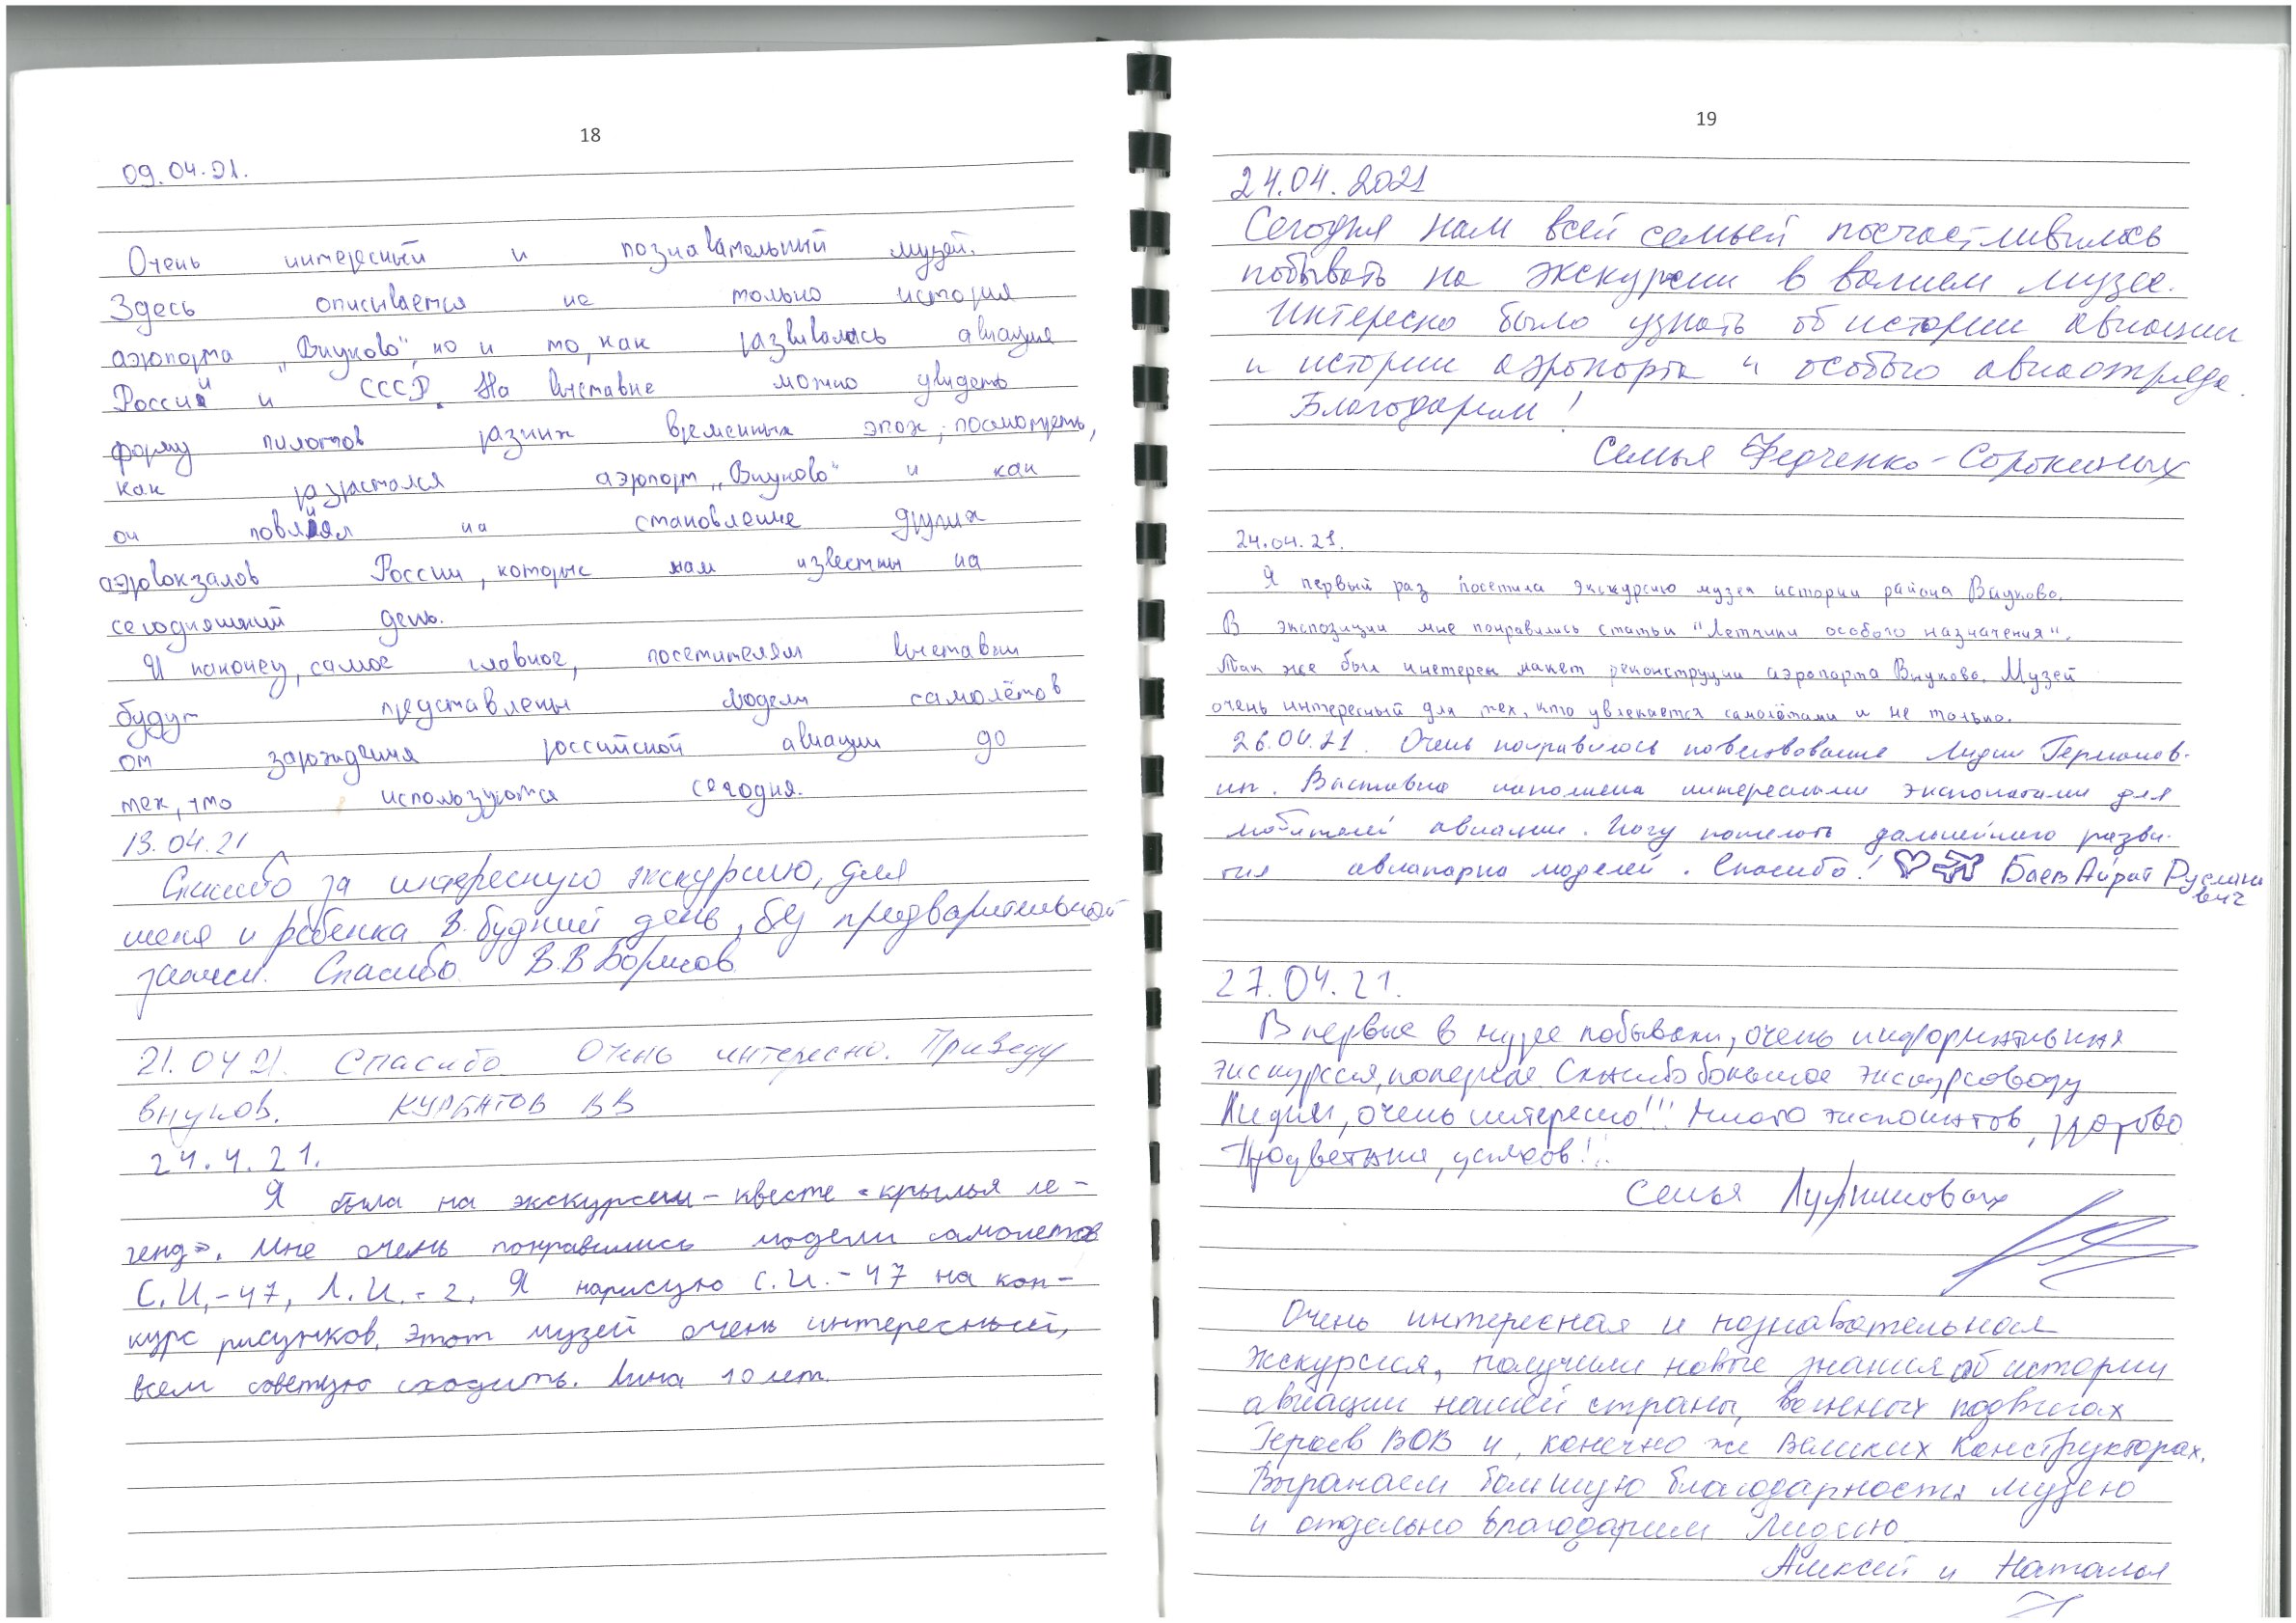 18
09.04.21.
Очень интересный и познавательный музей.
Здесь описывается не только история
аэропорта „Внуково", но и то, как развивалась авиация
России и СССР. На выставке можно увидеть
форму пилотов разных временных эпох, посмотреть,
как разрастался аэропорт „Внуково" и как
он повлиял на становление других
аэровокзалов России, которые нам известны на
сегодняшний день.
И наконец, самое главное, посетителям выставки
будут представлены модели самолётов
от зарождения российской авиации до
тех, что используются сегодня.
13.04.21
Спасибо за интересную экскурсию, для
меня и ребенка в будний день, без предварительной
записи. Спасибо В.В Борисов
21.04 21. Спасибо Очень интересно. Приведу
внуков. КУРБАТОВ ВВ
24.4.21.
Я была на экскурсии-квесте «крылья ле-
генд». Мне очень понравились модели самолетов
С.И.-47, Л.И.-2. Я нарисую С.И.-47 на кон-
курс рисунков. Этот музей очень интересный,
всем советую сходить. Лина 10 лет.
19
24.04.2021
Сегодня нам всей семьей посчастливилось
побывать на экскурсии в вашем музее.
Интересно было узнать об истории авиации
и истории аэропорта и особого авиаотряда.
Благодарим!
Семья Федченко-Сорокиных
24.04.21.
Я первый раз посетила экскурсию музея истории района Внуково.
В экспозиции мне понравились статьи "Летчики особого назначения".
Так же был интерен макет реконструции аэропорта Внуково. Музей
очень интересный для тех, кто увлекается самолётами и не только.
26.04.21. Очень понравилось повествование Лидии Германов-
ны. Выставка наполнена интересными экспонатами для
любителей авиации. Хочу пожелать дальнейшего разви-
тия авиапарка моделей. Спасибо! Баев Айрат Руслано
вич
27.04.21.
Впервые в музее побывали, очень информативная
экскурсия, полезная Спасибо большое экскурсоводу
Лидии, очень интересно!!! Много экспонатов, здорово
Процветания, успехов!!!
Семья
Очень интересная и познавательная
экскурсия, получили новые знания об истории
авиации нашей страны, важных подвигах
Героев ВОВ и, конечно же Великих Конструкторах.
Выражаем большую благодарность музею
и отдельно благодарим Лидию
Алексей и Наталья